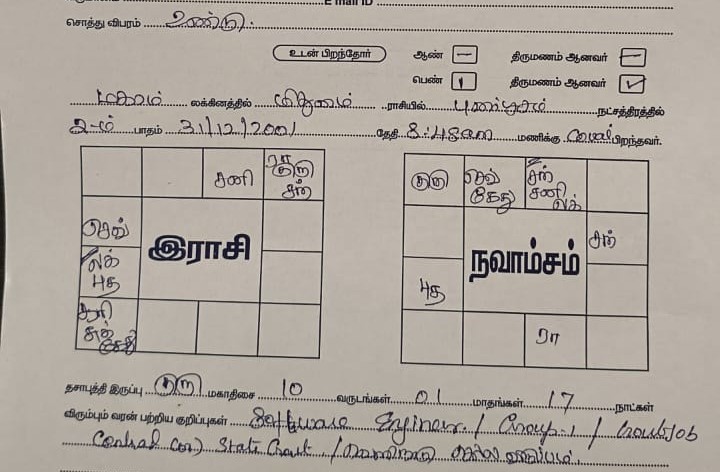 E mail ID
சொத்து விபரம் உண்டு.
உடன் பிறந்தோர் ஆண் — திருமணம் ஆனவர் —
பெண் 1 திருமணம் ஆனவர் ✓
மகரம் லக்கினத்தில் மிதுனம் ராசியில் புனர்பூசம் நட்சத்திரத்தில்
2-ம் பாதம் 31/12/2001 தேதி 8:48am மணிக்கு பிறந்தவர்.
சனி ரா குரு சந்
குரு செவ் கேது சூரி சனி லக்
செவ்
இராசி
சந்
நவாம்சம்
லக் புத
புத
சூரி சுக் கேது
ரா
தசாபுத்தி இருப்பு குரு மகாதிசை 10 வருடங்கள் 01 மாதங்கள் 17 நாட்கள்
விரும்பும் வரன் பற்றிய குறிப்புகள் Software Engineer / Group-1 / Govt Job
Central Gov) State Govt / வெளிநாடு செல்ல விருப்பம்